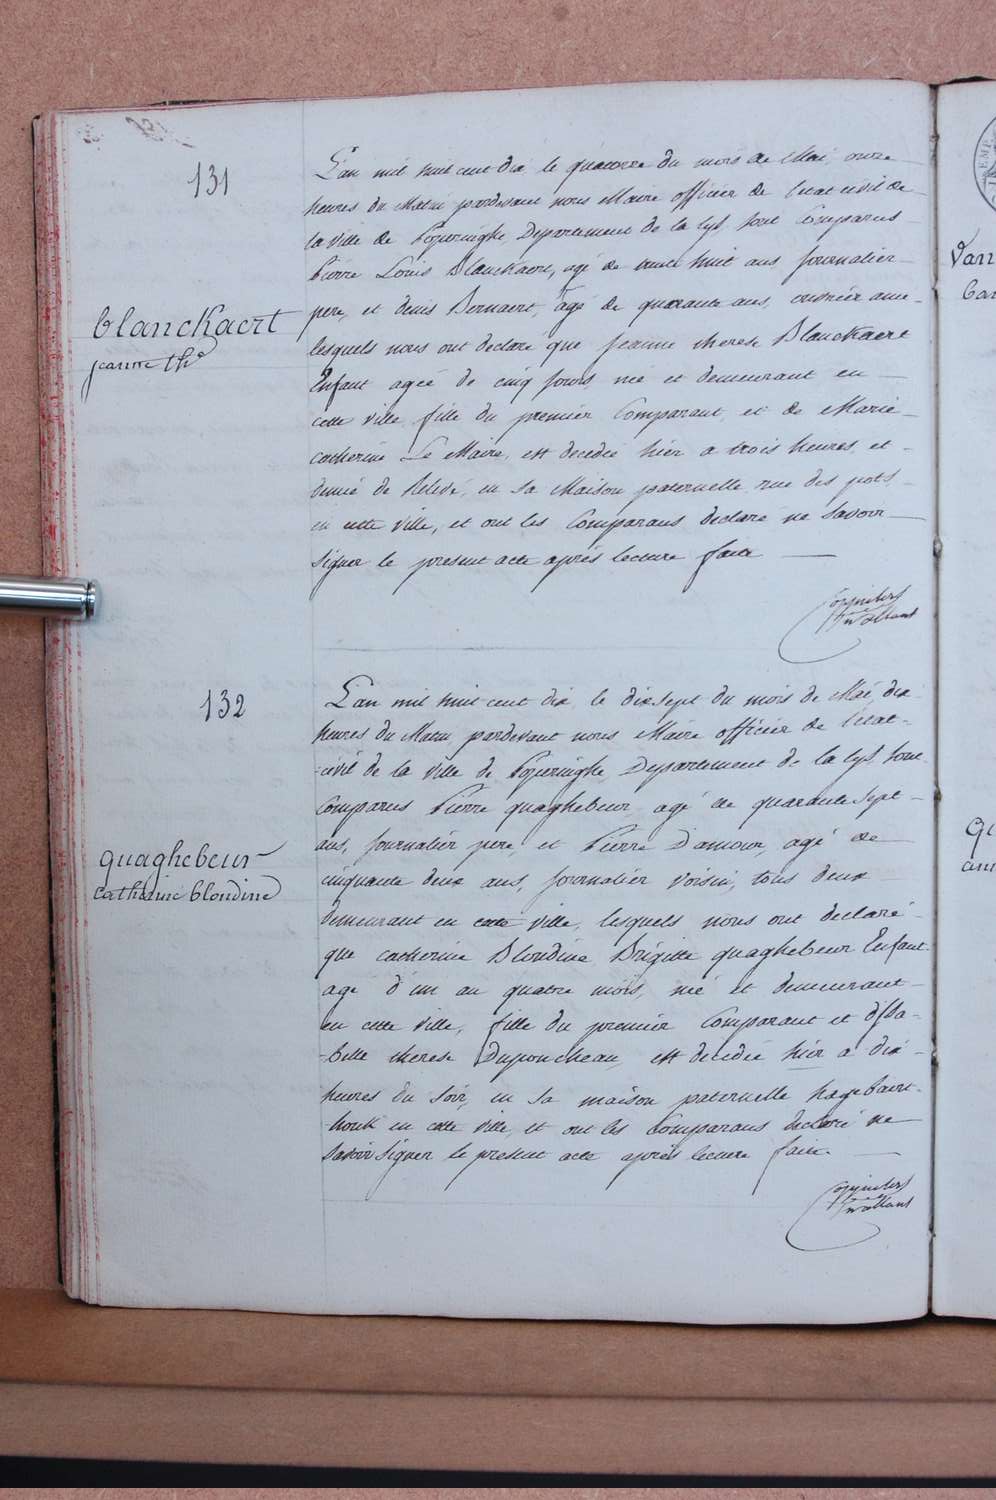 131
blanckaert
jeanne the
L'an mil huit cent dix le quatorze du mois de Mai, onze
heures du Matin pardevant nous Maire officier de l'etat civil de
la ville de Poperinghe, Departement de la Lys, sont Comparus
Pierre Louis Blanckaert, agé de trente huit ans journalier
pere, et denis Bernaert, agé de quarante ans,
lesquels nous ont declare que jeanne therese Blanckaert
Enfant agée de cinq jours, née et demeurant en
cette ville, fille du premier Comparant, et de Marie
catherine Le Maire, est decedée hier a trois heures et
demie de Relevé, en sa Maison paternelle rue des pots
en cette ville, et ont les Comparans declaré ne Savoir
signer le present acte après lecture faite
132
quaghebeur
catherine blondine
L'an mil huit cent dix, le dix sept du mois de Mai, dix
heures du Matin, pardevant nous Maire officier de l'etat
civil de la ville de Poperinghe, Departement de la Lys, sont
Comparus Pierre quaghebeur, agé de quarante sept
ans, journalier pere, et Pierre D'amour, agé de
cinquante deux ans, journalier voisin, tous deux
demeurant en cette ville, lesquels nous ont declaré
que catherine Blondine Brigitte quaghebeur Enfant
age d'un an quatre mois, né et demeurant
en cette ville, fille du premier Comparant et d'Isa-
-belle therese Duponcheau, est decedée hier a dix
heures du Soir, en sa maison paternelle hagebaert
-houk en cette ville, et ont les Comparans declaré ne
Savoir Signer le present acte après lecture faite.
Van